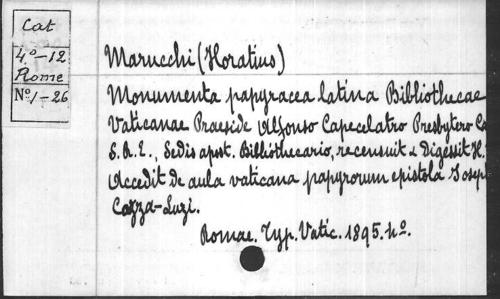 Cat
4º-12
Rome
Nº 1-26
Marucchi (Horatius)
Monumenta papyracea latina Bibliothecae
Vaticanae Praeside Alfonso Capecelatro Presbytero Ca
S.R.E., Sedis apost. Bibliothecario, recensuit & digessit H.
Accedit de aula vaticana papyrorum epistola Josep
Cozza-Luzi.
Romae. Typ. Vatic. 1895. 4º.